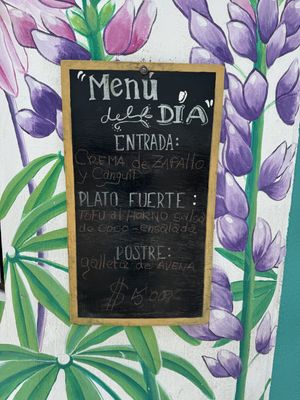 "Menú
del DÍA"
ENTRADA:
CREMA de ZAPALLO
y Canguil
PLATO FUERTE:
TOFU al HORNO Salsa
de coco - ensalada
POSTRE:
galleta de AVENA